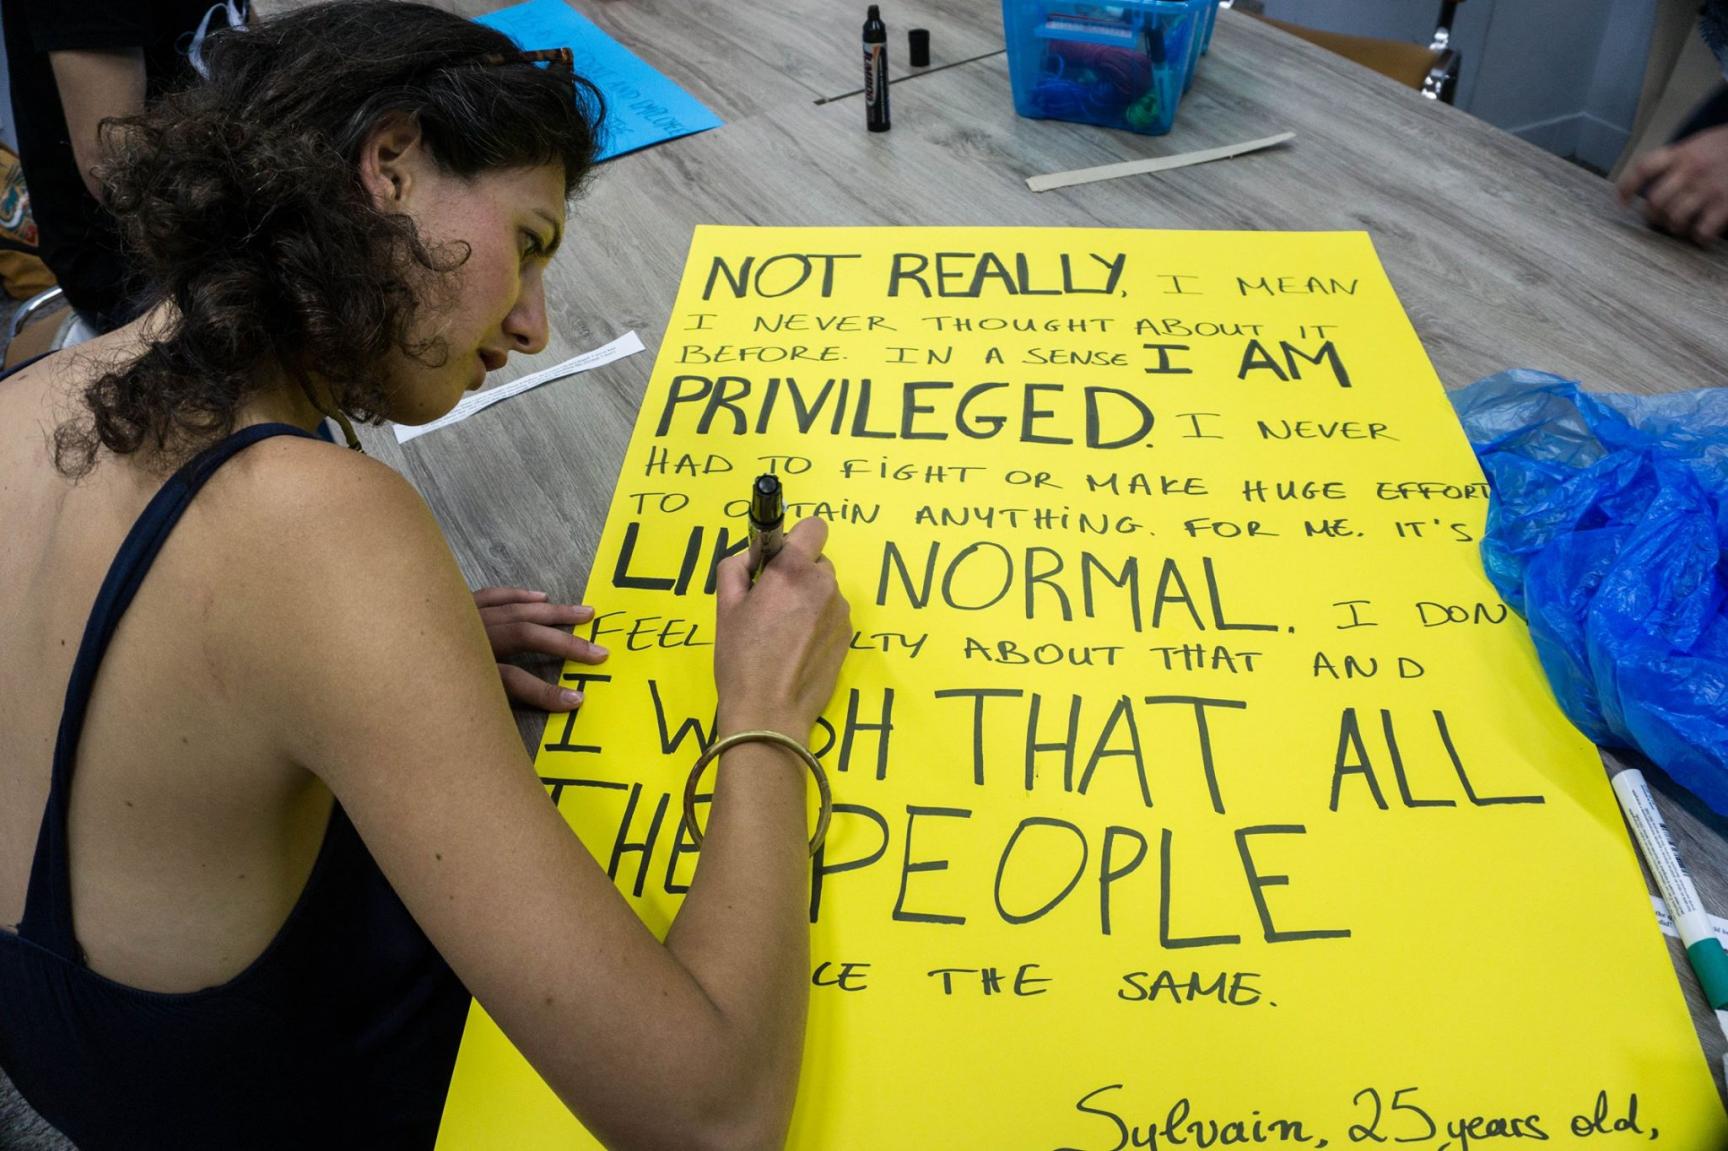 NOT REALLY, I MEAN
I NEVER THOUGHT ABOUT IT
BEFORE. IN A SENSE I AM
PRIVILEGED. I NEVER
HAD TO FIGHT OR MAKE HUGE EFFORT
TO O TAIN ANYTHING. FOR ME. IT'S
LIK NORMAL. I DON
FEEL LTY ABOUT THAT AND
I W SH THAT ALL
THE PEOPLE
THE SAME.
Sylvain, 25 years old,